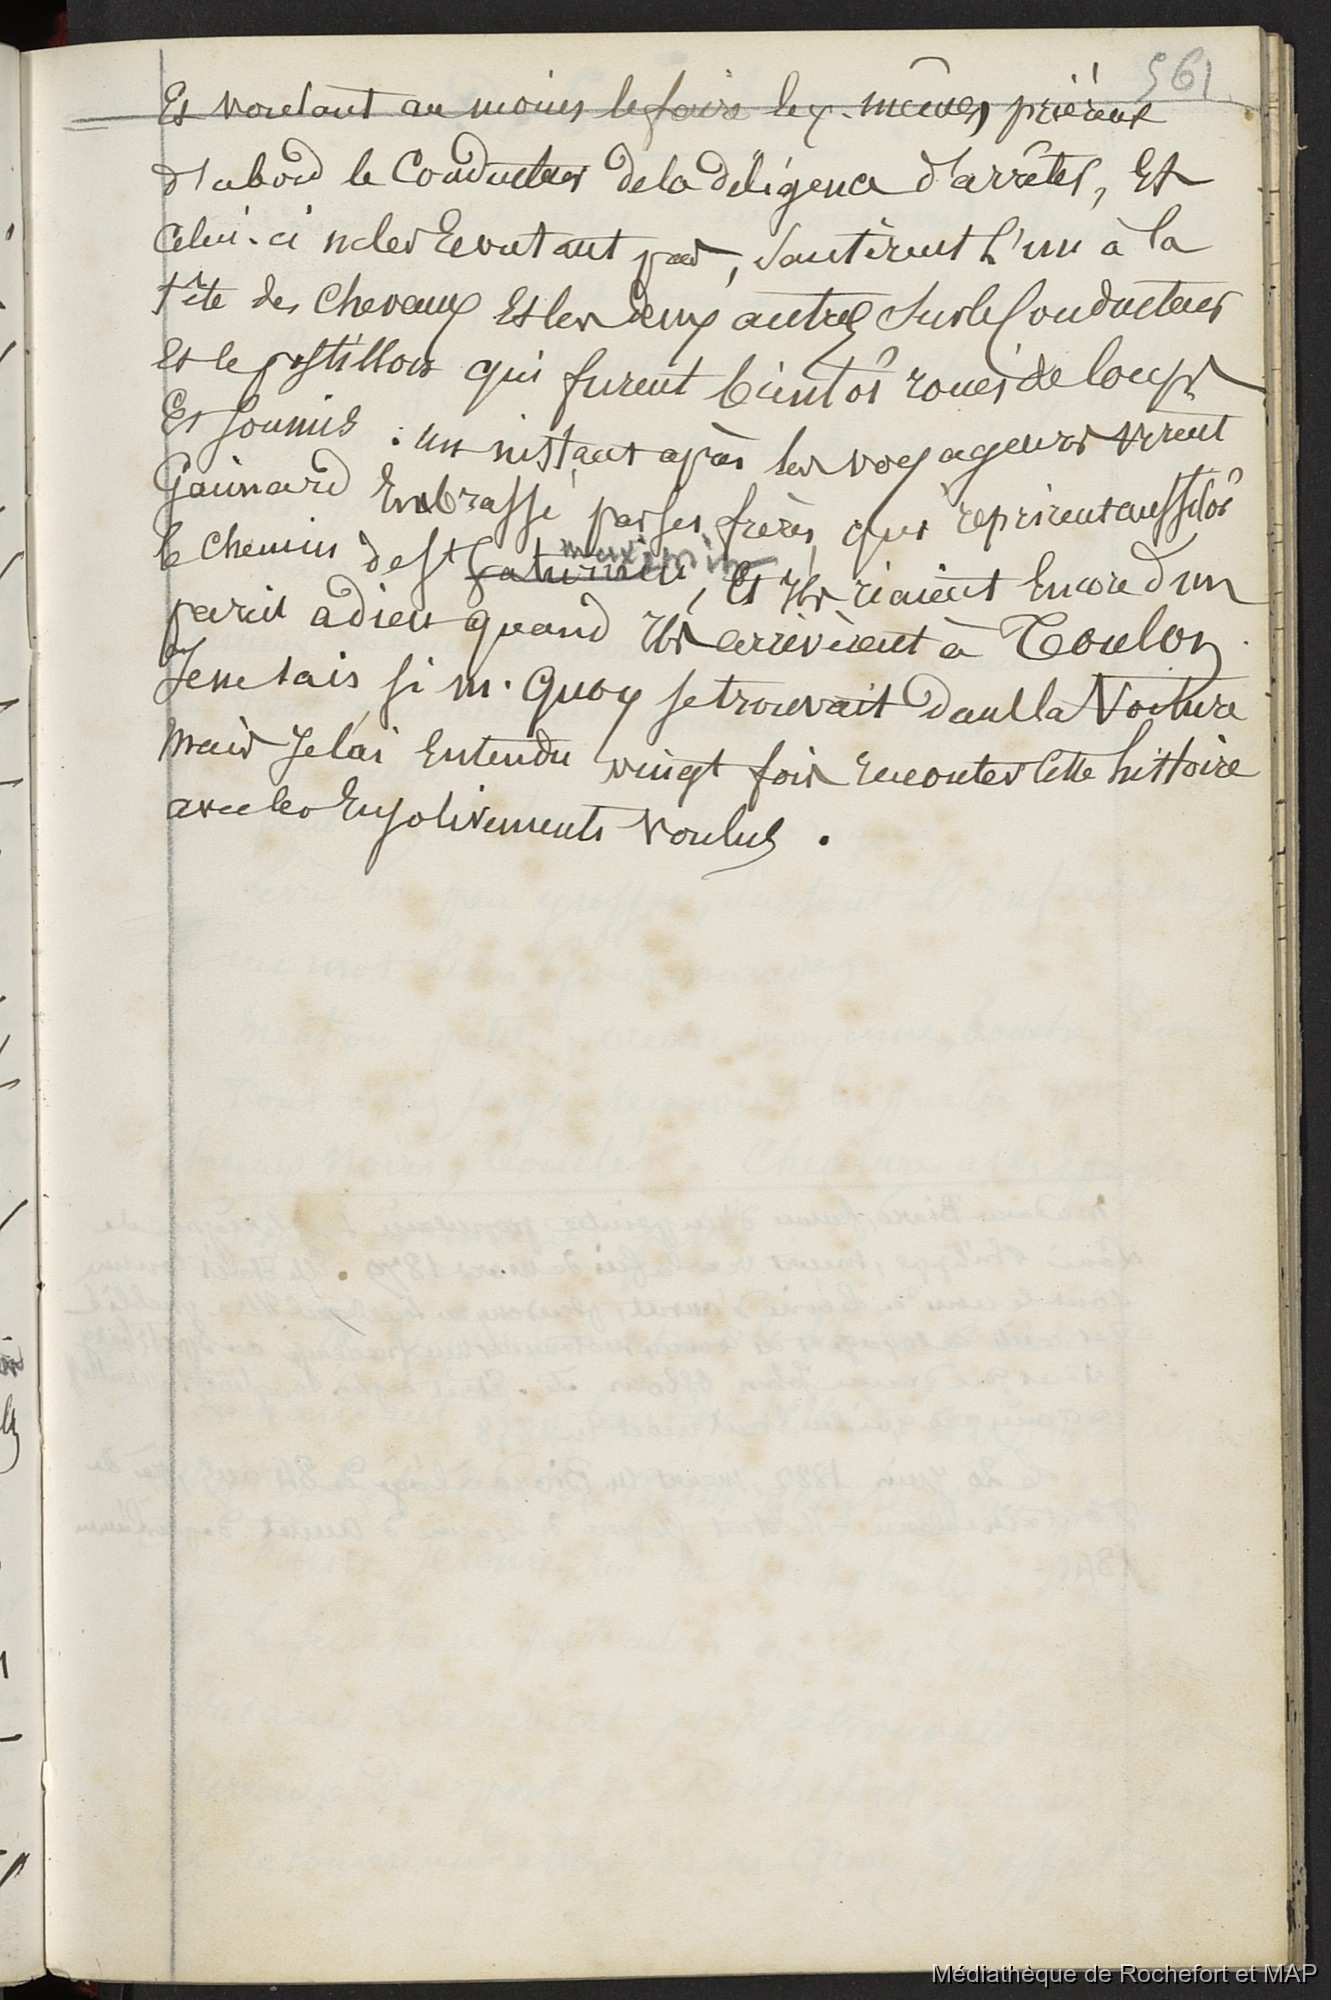 561
Et voulant au moins le faire eux-mêmes, prièrent
d'abord le Conducteur de la diligence d'arrêter, Et
celui-ci ne les Ecoutant pas, sautèrent l'un à la
tête des chevaux Et les deux autres sur le Conducteur
Et le postillon qui furent bientôt roués de coups
Et soumis. un instant après les voyageurs virent
Gaimard Embrassé par ses frères, qui reprirent aussitôt
maximin
le chemin de St Saturnin, Et ils riaient Encore d'un
pareil adieu quand ils arrivèrent à Toulon.
Je ne sais si M. Quoy se trouvait dans la Voiture
Mais Je l'ai Entendu vingt fois raconter cette histoire
avec les Enjolivements voulus.
Médiathèque de Rochefort et MAP